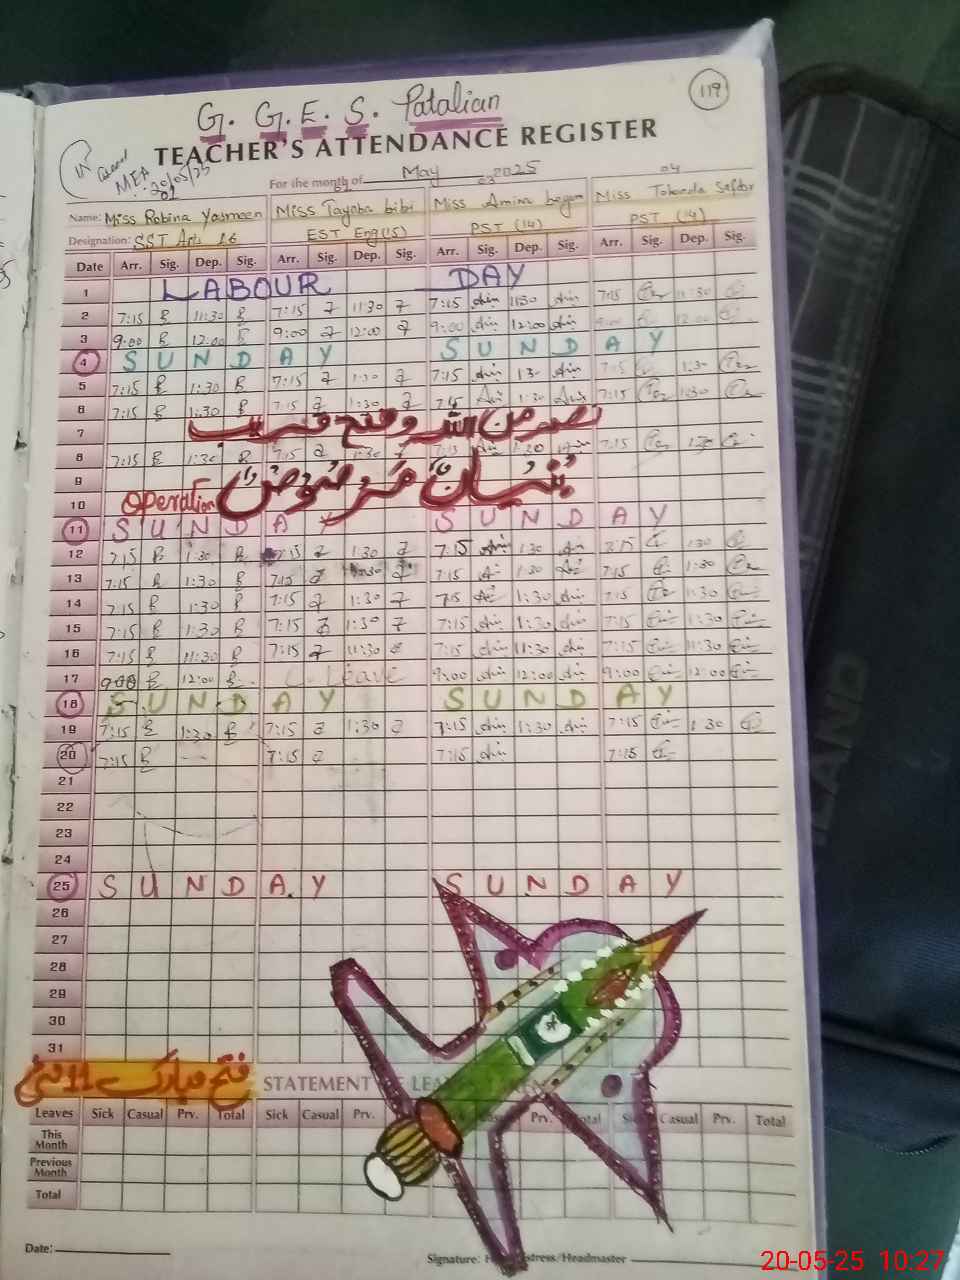 119
G. G. E. S. Patalian
TEACHER'S ATTENDANCE REGISTER
MEA
20/05/25
For the month of May 2025
01 02 03 04
Name: Miss Robina Yasmeen Miss Tayaba bibi Miss Amina begum Miss Tobeeda Safdar
Designation: SST Arts 16 EST Eng(15) PST (14) PST (14)
Date Arr. Sig. Dep. Sig. Arr. Sig. Dep. Sig. Arr. Sig. Dep. Sig. Arr. Sig. Dep. Sig.
1 LABOUR DAY
2 7:15 11:30 7:15 11:30 7:15 11:30 7:15 11:30
3 9:00 12:00 9:00 12:00 9:00 12:00 9:00 12:00
4 SUNDAY SUNDAY
5 7:15 1:30 7:15 1:30 7:15 1:30 7:15 1:30
6 7:15 1:30 7:15 1:30 7:15 1:30 7:15 1:30
7 نصر من اللہ و فتح قریب
8 7:15 1:30 7:15 1:30 7:15 1:30 7:15 1:30
9
10 Operation بُنْيَانٌ مَّرْصُوْصٌ
11 SUNDAY SUNDAY
12 7:15 1:30 7:15 1:30 7:15 1:30 7:15 1:30
13 7:15 1:30 7:15 1:30 7:15 1:30 7:15 1:30
14 7:15 1:30 7:15 1:30 7:15 1:30 7:15 1:30
15 7:15 1:30 7:15 1:30 7:15 1:30 7:15 1:30
16 7:15 11:30 7:15 11:30 7:15 11:30 7:15 11:30
17 9:00 12:00 Leave 9:00 12:00 9:00 12:00
18 SUNDAY SUNDAY
19 7:15 1:30 7:15 1:30 7:15 1:30 7:15 1:30
20 7:15 7:15 7:15 7:15
21
22
23
24
25 SUNDAY SUNDAY
26
27
28
29
30
31
فتح مبارک 11 مئی
STATEMENT OF LEAVE
Leaves Sick Casual Prv. Total Sick Casual Prv. Prv. Total Casual Prv. Total
This Month
Previous Month
Total
Date:
Signature: Headmistress/Headmaster
20-05-25 10:27